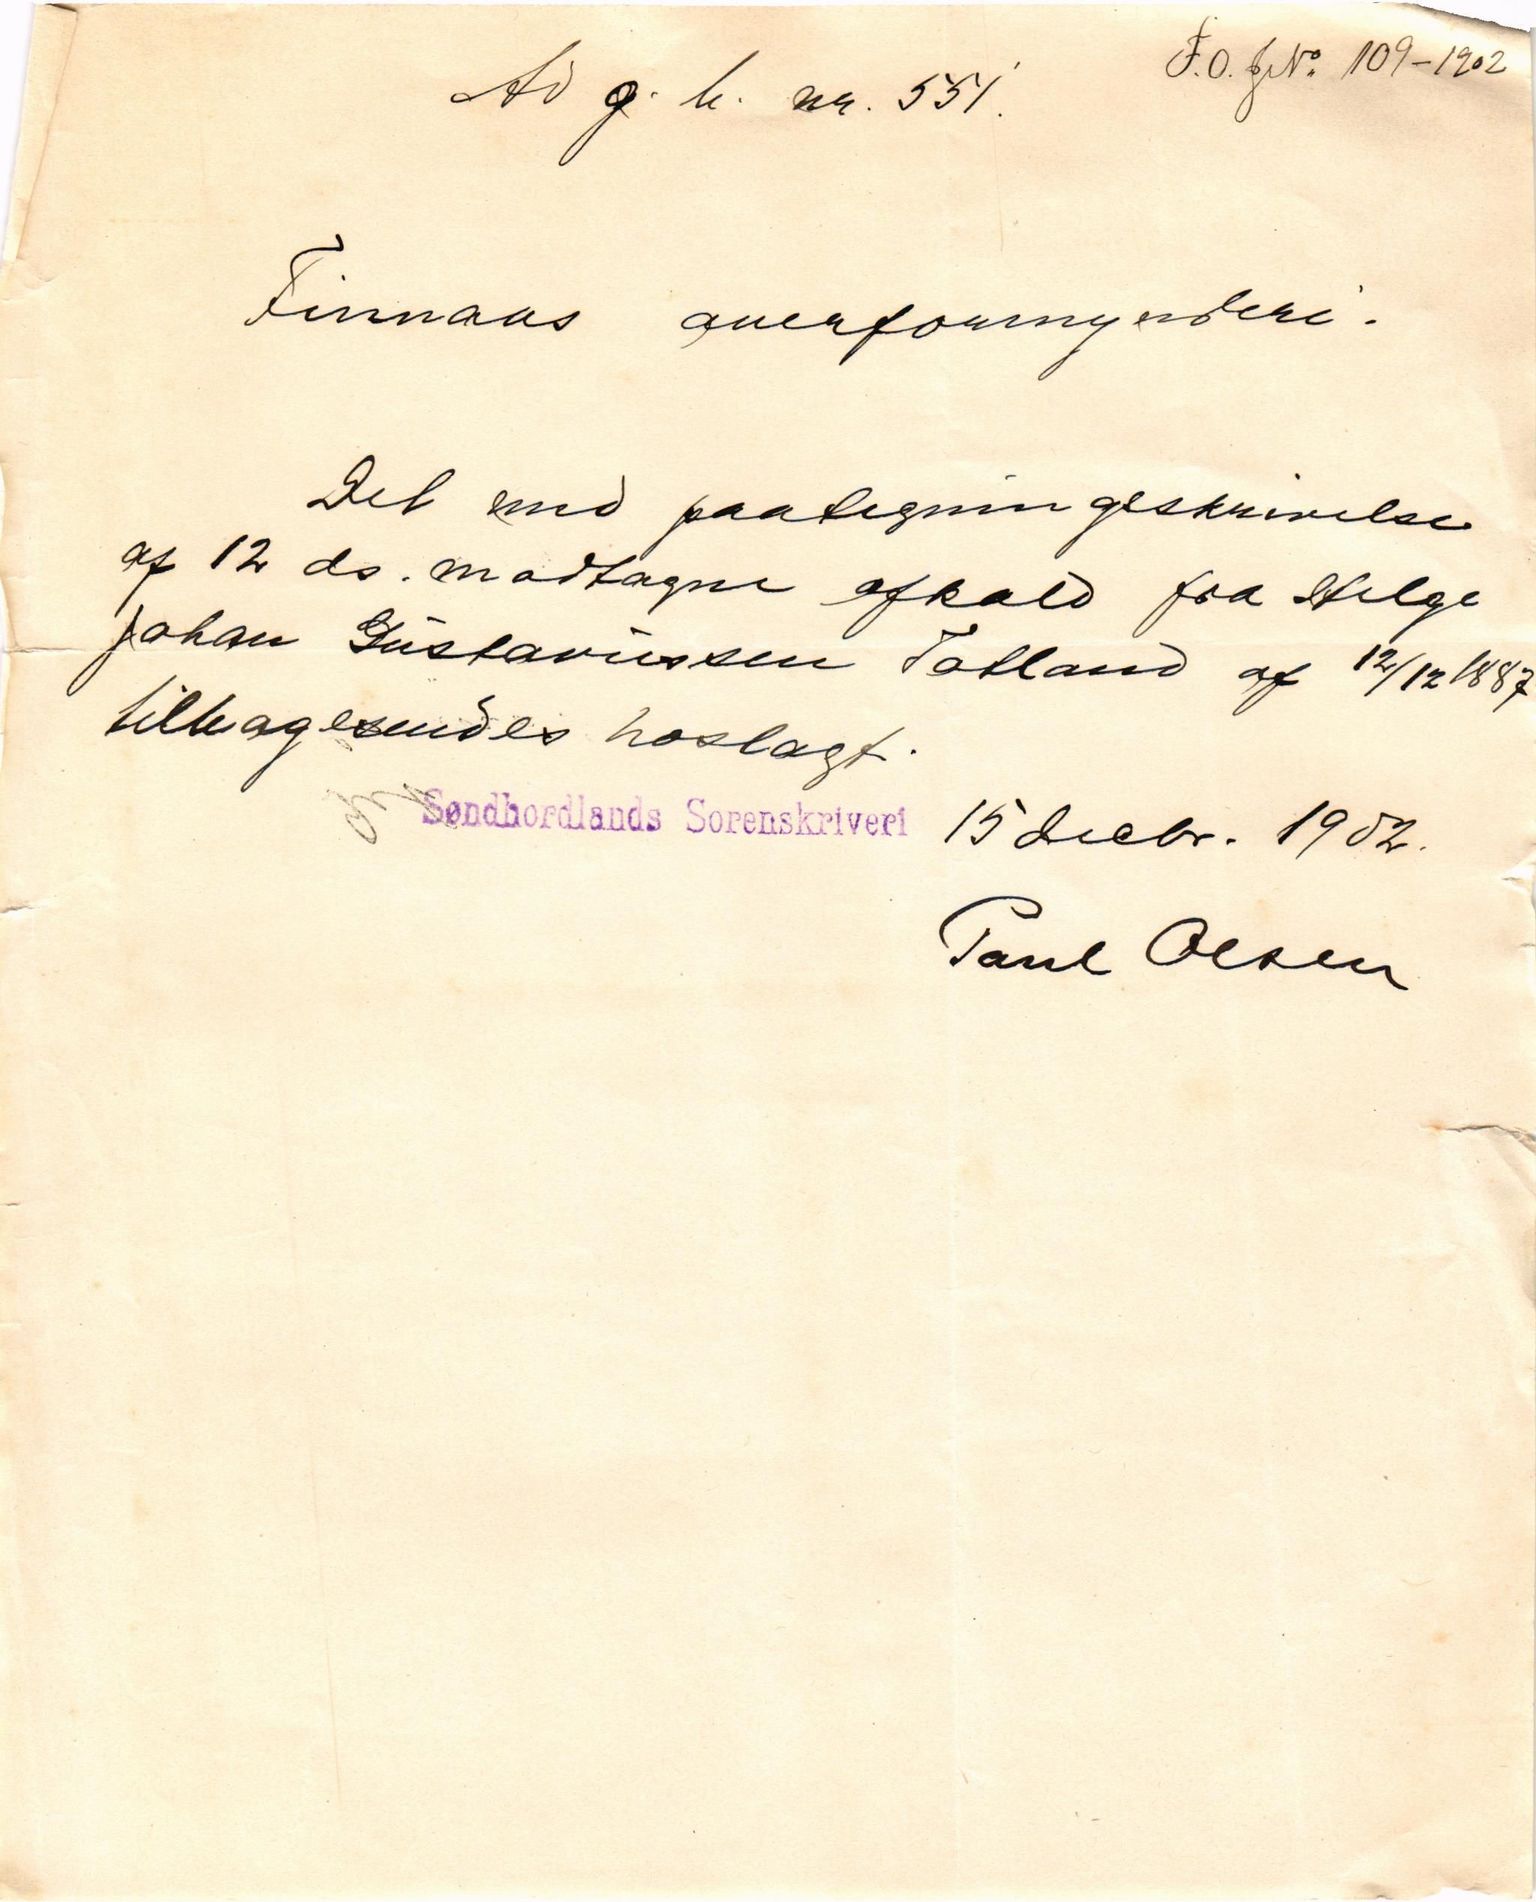 F.O. J No. 109–1902
Ad g. h. nr. 551.
Finnaas overformynderi.
Det med paategningsskrivelse
af 12 ds. modtagne afkald fra Helge
Johan Gustaviussen Totland af 12/12 1887
tilbagesendes hoslagt.
Søndhordlands Sorenskriveri 15 decbr. 1902.
Paul Olsen